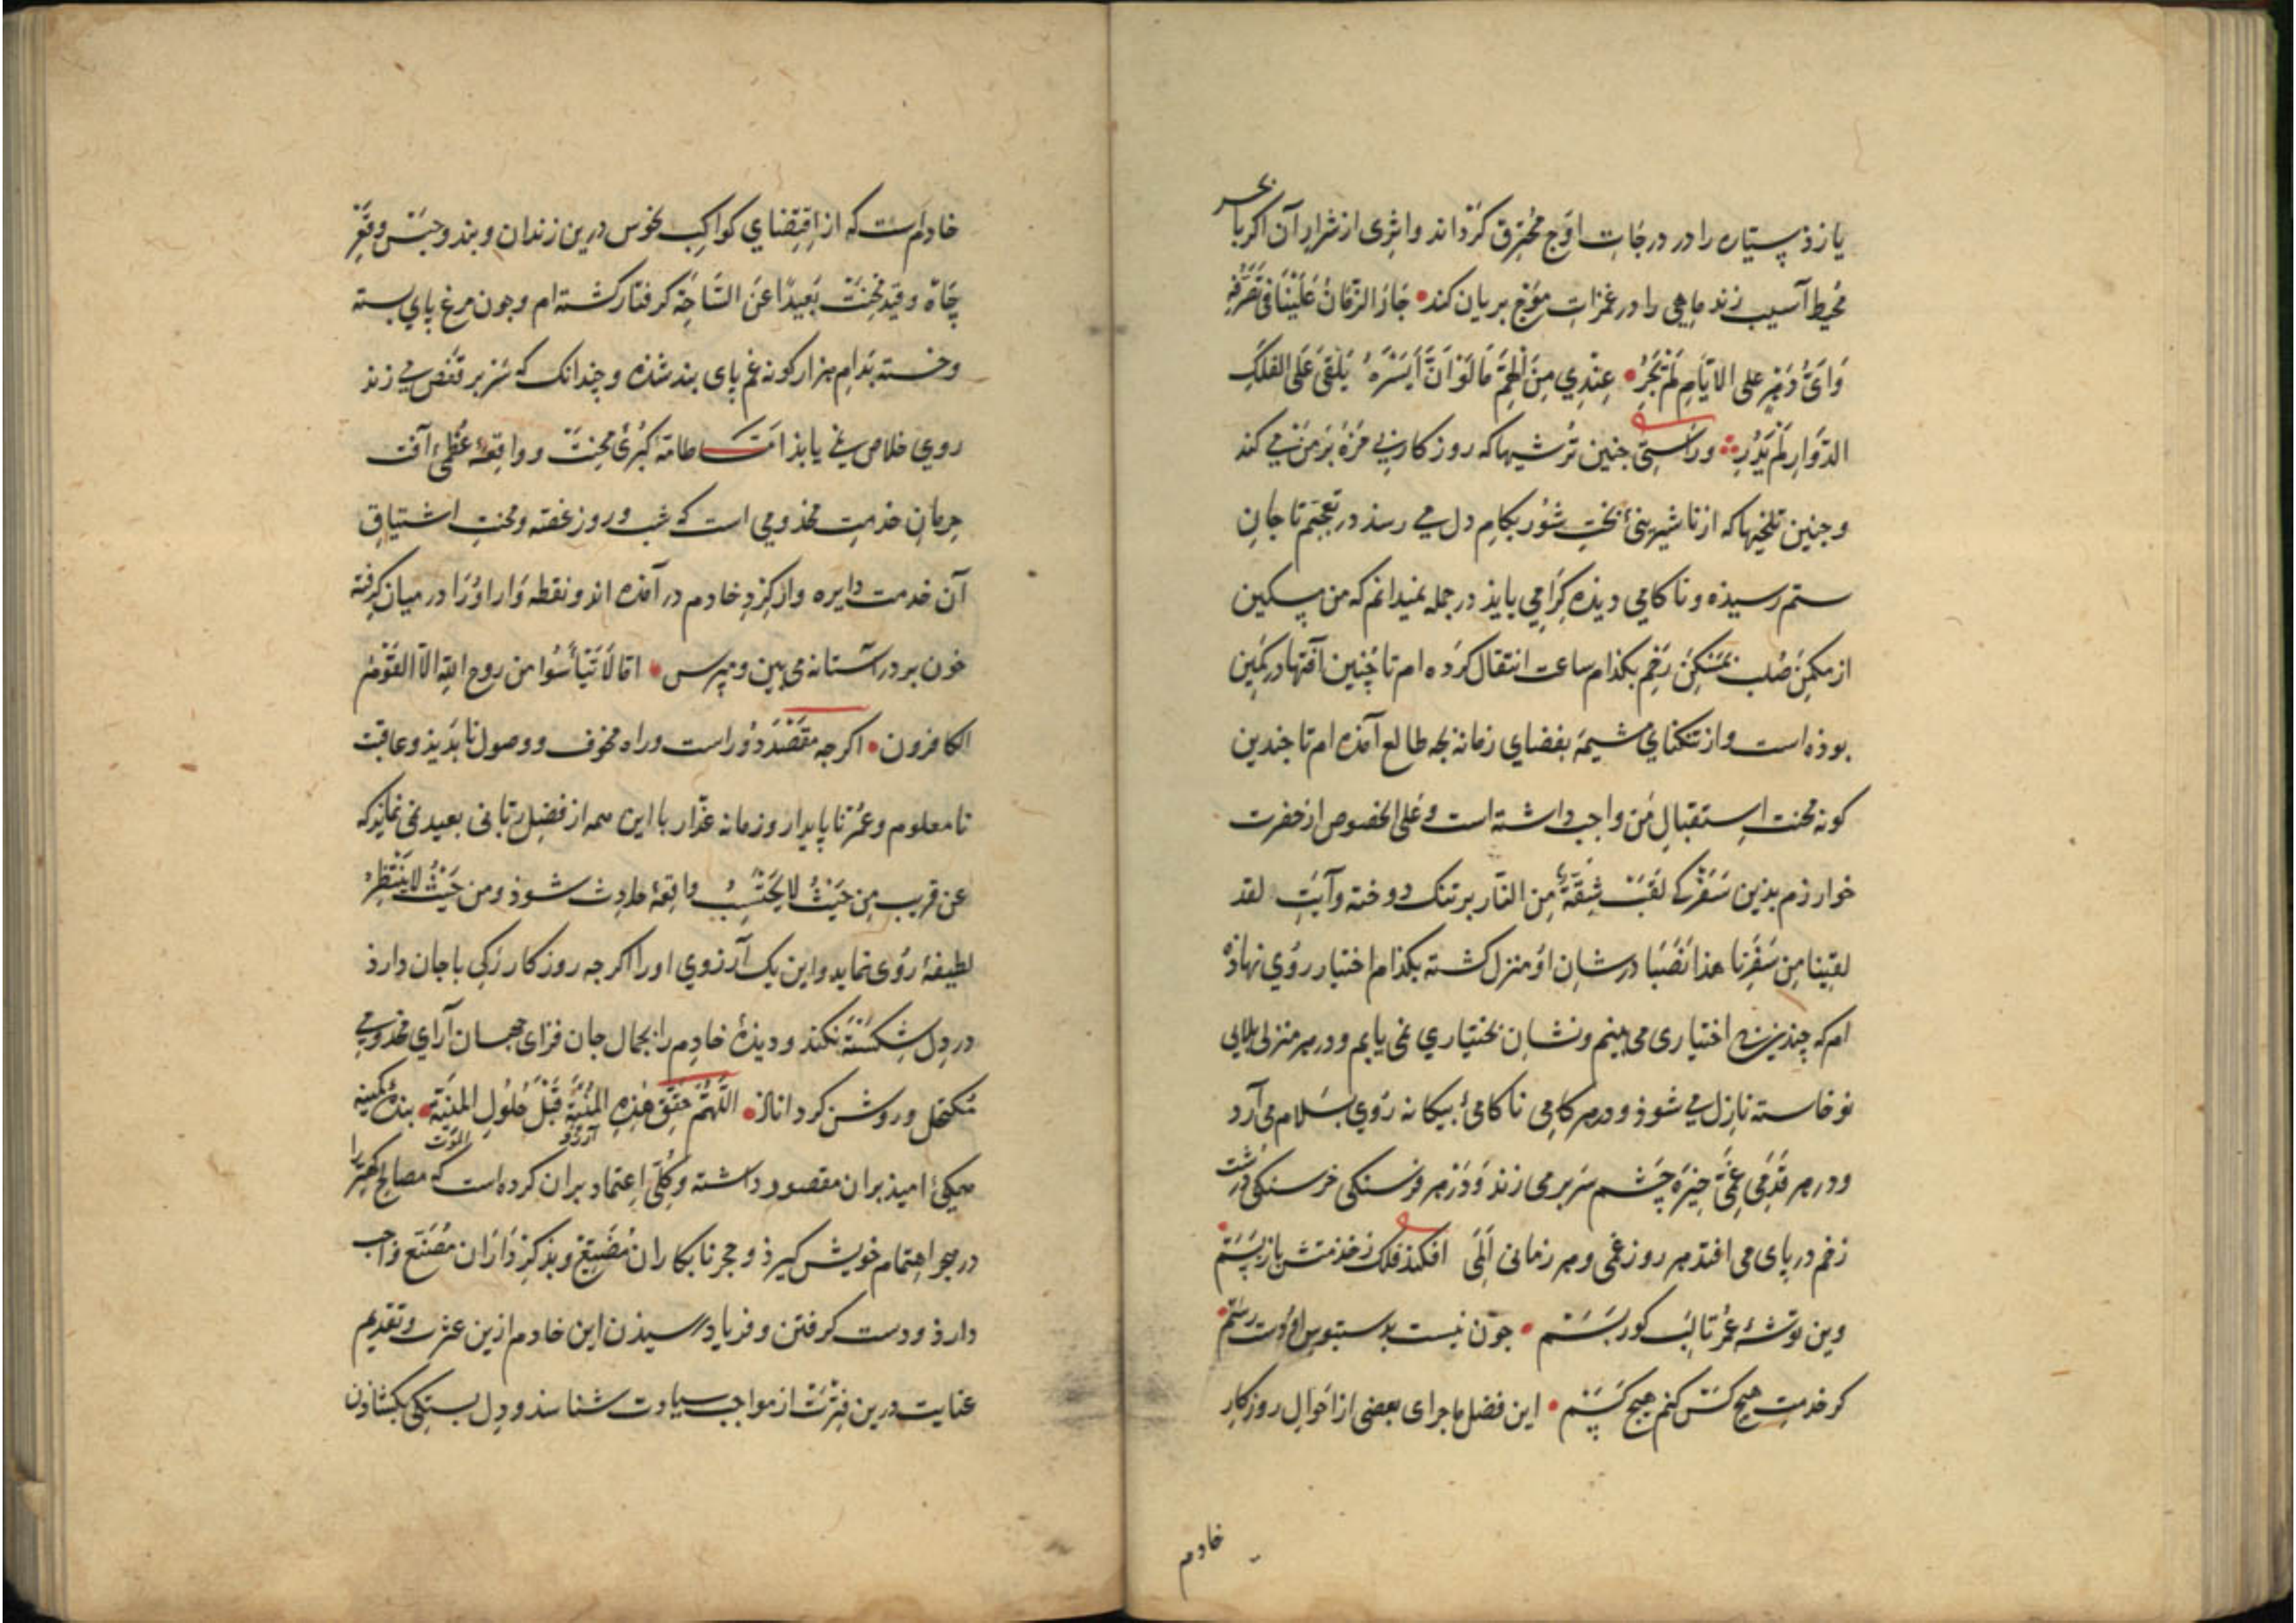 یا زذ سیتاره را در درجات اوج محترق کرداند و اثری از شرار آن اکر با بحر
محیط آسیب زند ماهی را در غمرات موج بریان کند • جَارَ الزَّمَانُ عَلَيْنَا فِي تَصَرُّفِهِ
وَايُّ دَهْرٍ عَلَى الاَيَّامِ لَمْ يَجُرِ • عِنْدِي مِنَ الْهَمِّ مَا لَوْ اَنَّ اَيْسَرَهُ يُلْقَى عَلَى الفَلَكِ
الدَّوَّارِ لَمْ يَدُرِ و راستی جنین ترشیها که روزکار بی مزه بر من می کند
و جنین تلخیها که از ناشیرینی بخت شور بکام دل می رسد در تعجبم تا جان
ستم رسیذه و ناکامی دیذه کرامی بایذ در جمله نمیدانم که من مسکین
از مکمن صلب بمسکن رحم بکدام ساعت انتقال کرده ام تا چنین آفتها در کمین
بوذه است و از تنکنای مشیمه بفضای زمانه بجه طالع آمذه ام تا جندین
کونه محنت استقبال من واجب داشته است و علی الخصوص از حضرت
خوارزم بذین سفر کی لقبت شقة من النار بر تنک دوخته و آیت لقد
لقینا من سفرنا هذا نصبا در شان او منزل کشته بکدام اختیار روی نهاذه
ام که چندین بی اختیاری می بینم و نشان بختیاری نمی یابم و در هر منزلی بلایی
نوخاسته نازل می شوذ و در هر کامی ناکامی بیکانه روی بسلام می آرد
و در هر قدمی غمی خیره چشم سر بر می زند و در هر فرسنکی خرسنکی درشت
زخم در پای می افتد هر روز غمی و هر زمانی المی افکند فلک ز خدمتش باز پستم
وین توشه عمر تا لب کور بستم • جون نیست بدستبوس او دست رستم
کر خدمت هیچ کس کنم هیچ کسم • این فضل ماجرای بعضی از احوال روزکار
خادم
خادم است که از اقتضای کواکب نحوس درین زندان و بند و حبس و قعر
چاه و قید محنت بعیدا عن الساحة کرفتار کشته ام و جون مرغ پای بسته
و خسته بدام هزار کونه غم پای بند شذه و چندانک که سر بر قفص می زند
روی خلاص نمی یابذ امّا طامّه کبری محنت و واقعه عظمی آفت
حرمان خدمت مخذومی است که شب و روز غصه و محنت اشتیاق
آن خدمت دایره وار کرد خادم در آمذه اند و نقطه وار او را در میان کرفته
خون بر در آستانه می بین و مپرس • اما لا تیأسوا من روح الله الا القوم
الکافرون • اکرجه مقصد دور است و راه مخوف و وصول ناپذیذ و عاقبت
نامعلوم و عمر ناپایدار و زمانه غدّار با این همه از فضل ربّانی بعید نمی نمایذ که
عن قریب من حیث لا یحتسب واقعه حادث شوذ و من حیث لا ینتظر
لطیفه روی نماید و این یک آرزوی او را اکرجه روزکار رکی با جان دارذ
در دل شکسته نکند و دیذه خادم را بجمال جان فزای جهان آرای مخدومی
مکتحل و روشن کرداناذ • اللَّهُمَّ حَقِّقْ هٰذِهِ المُنْيَةَ قَبْلَ حُلُولِ المَنِيَّةِ • بنده کمینه
آرزو الموت
همکی امیذ بران مقصور داشته و کلّی اعتماد بران کرده است که مصالح کهتر را
در حجر اهتمام خویش کیرذ و حجر نابکاران مضیّع و بذکرداران مصنّع واجب
دارذ و دست کرفتن و فریاد رسیذن این خادم ازین عثرت و تقدیم
عنایت درین فترت از مواجب سیادت شناسذ و دل بستکی بکشاذن